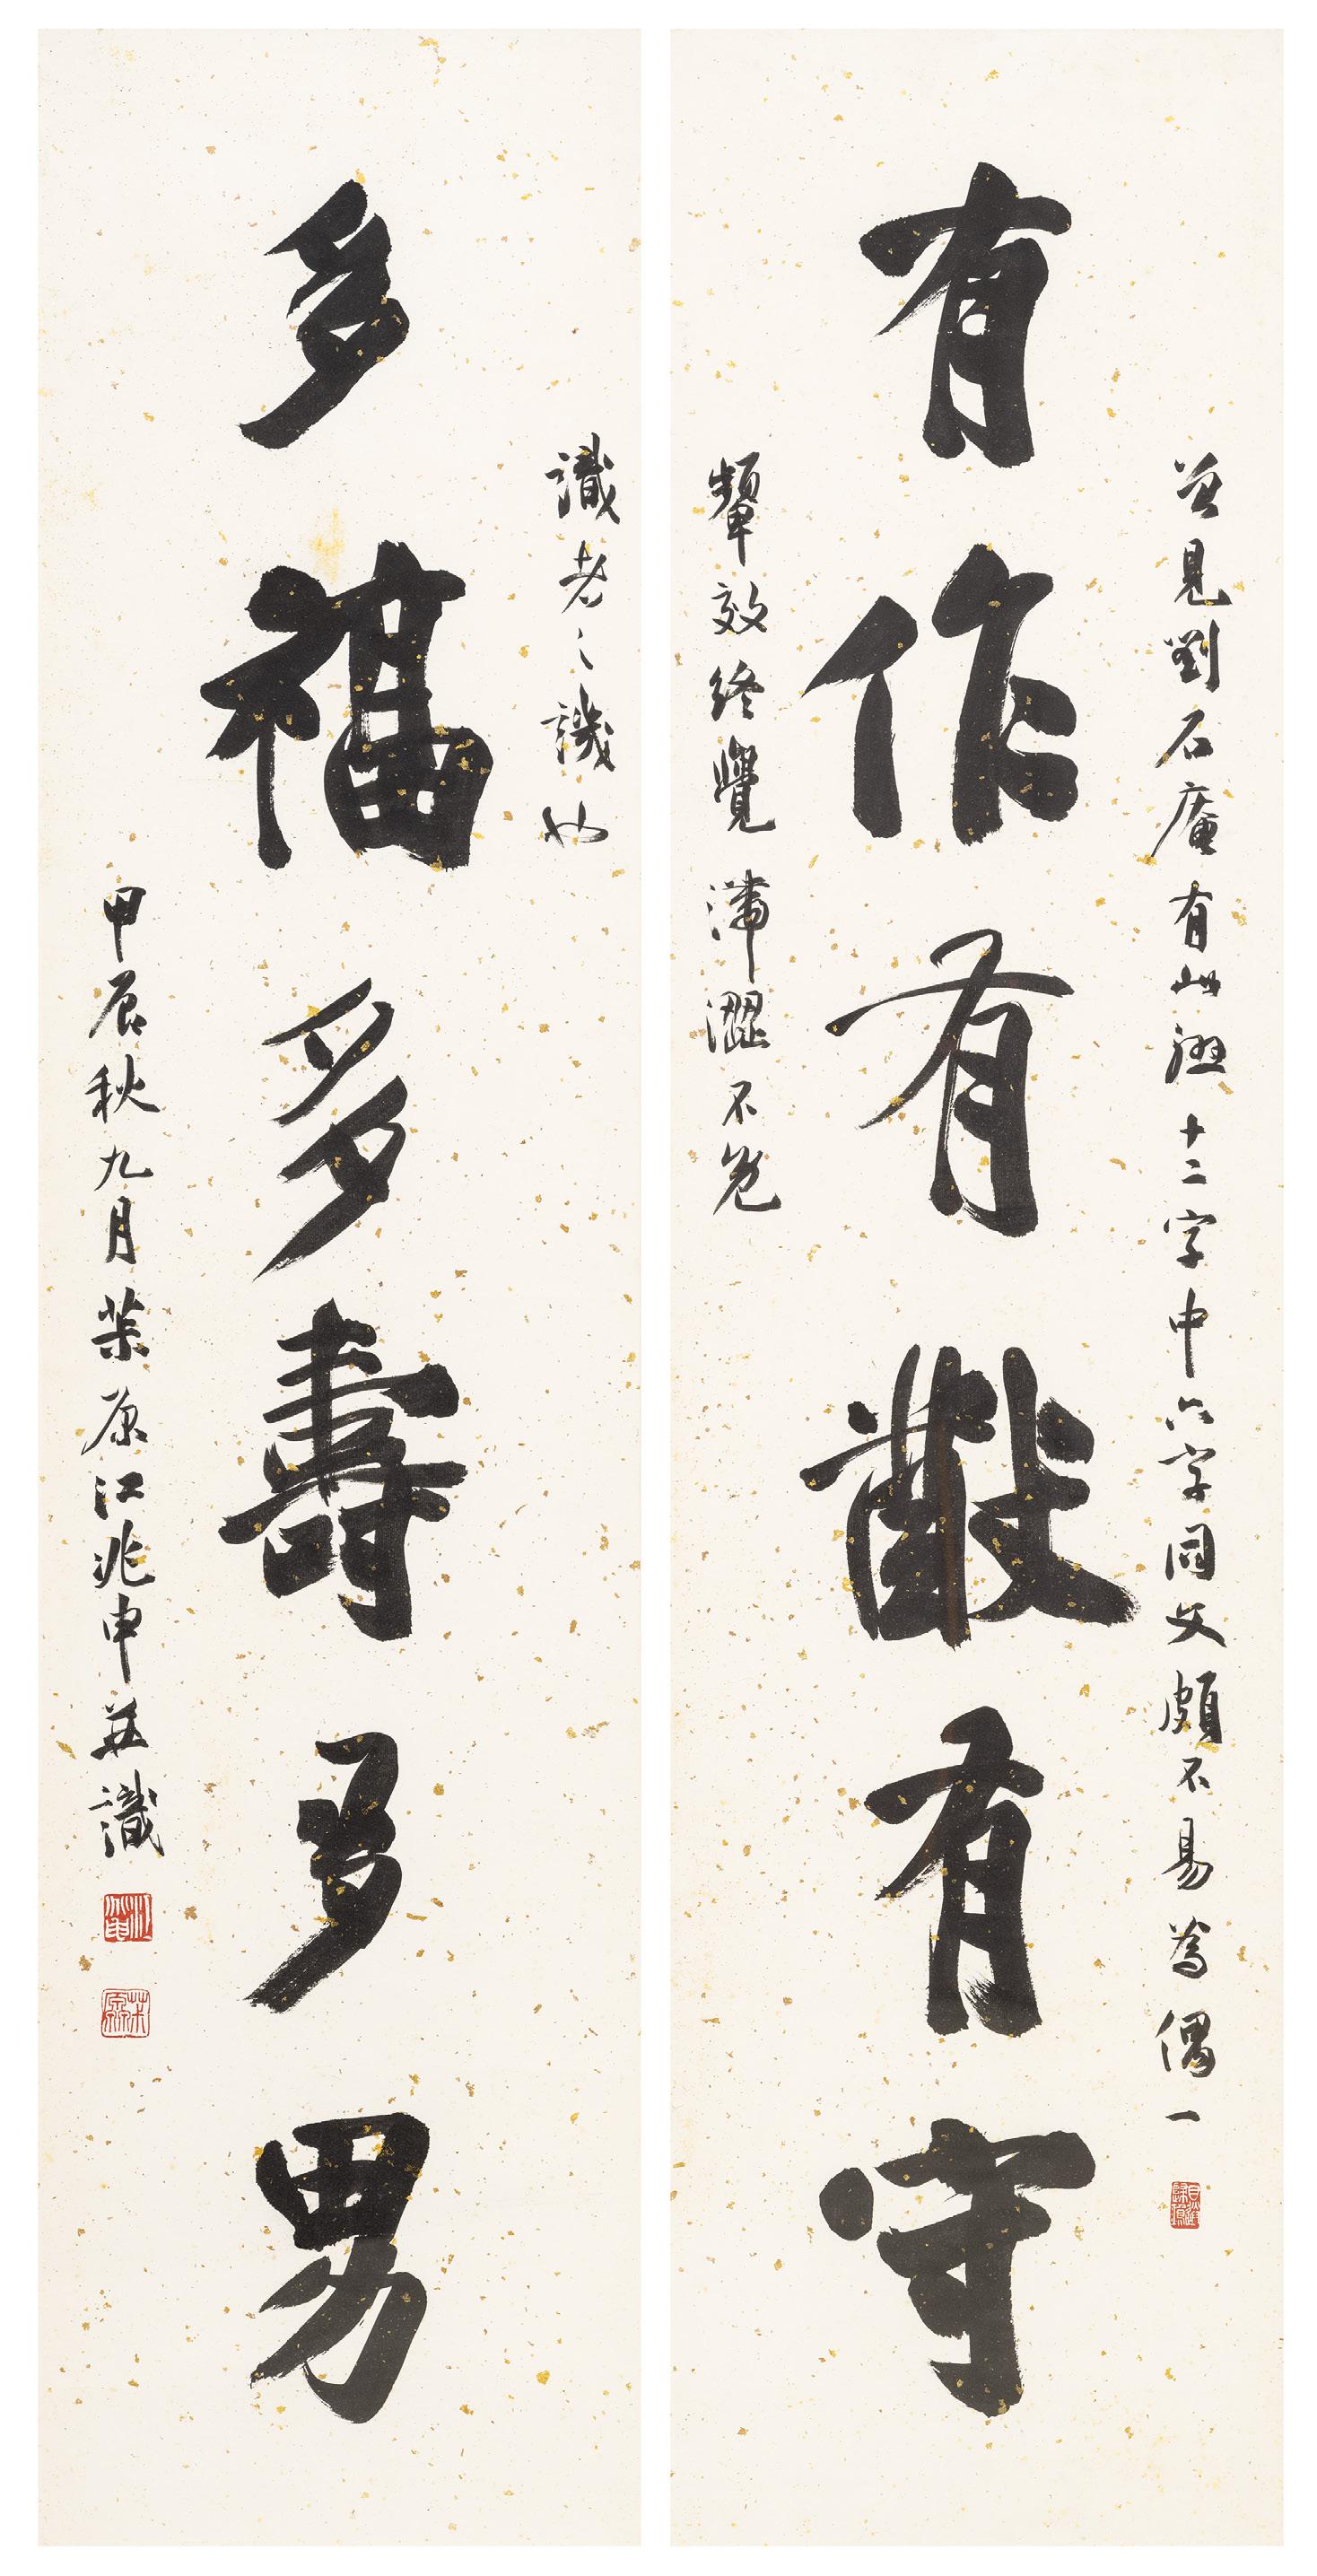 曾見劉石庵有此聯十二字中六字同文頗不易為偶一
有作有猷有守
顰效終覺滯澀不免
識者之譏也
多福多壽多男
甲辰秋九月茮原江兆申並識
江兆申
茮原